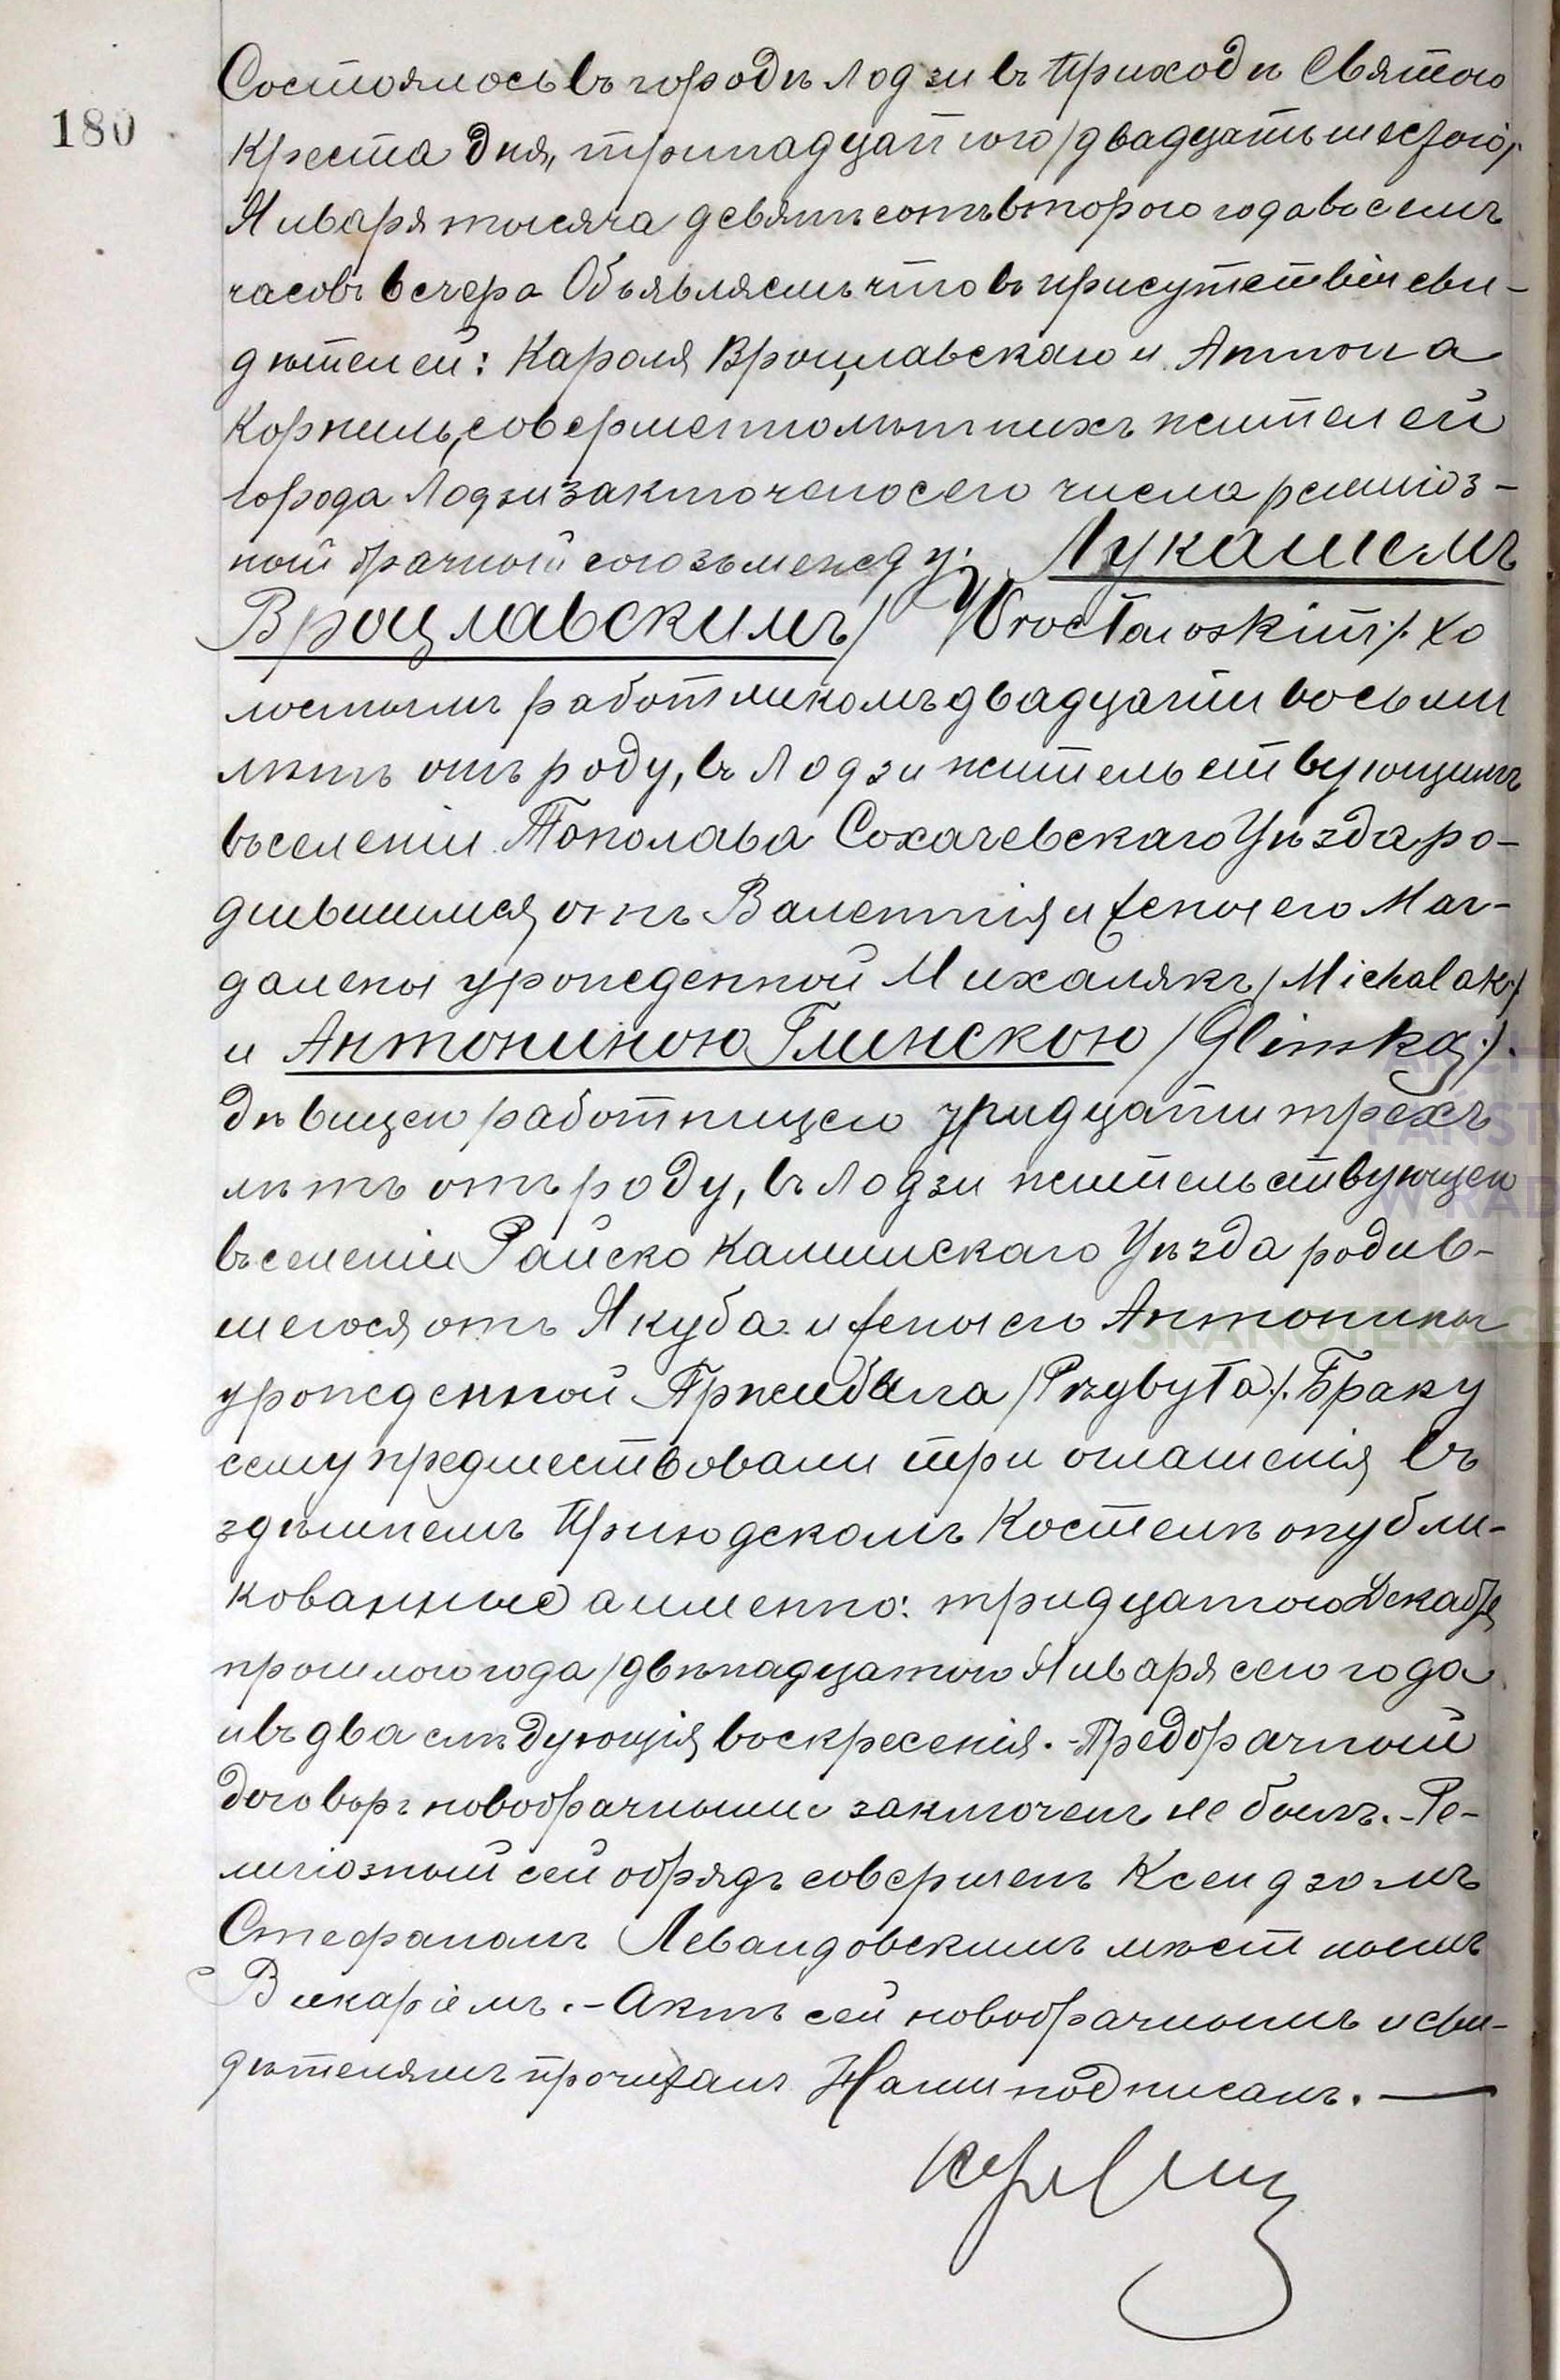 180
Состоялось въ городѣ Лодзи въ Приходѣ Святого
Креста дня, тринадцатого /двадцать шестого/.
Января тысяча девятьсотъ второго года восемь
часовъ вечера Объявляемъ что въ присутствіи сви-
дѣтелей: Кароля Вроцлавскаго и Антона
совершеннолѣтнихъ жителей
города Лодзи заключено сего числа религіоз-
ный брачный союзъ между: Лукашемъ
Вроцлавскимъ / Wrocławskim /. хо
лостымъ работникомъ двадцати восьми
лѣтъ отъ роду, въ Лодзи жительствующимъ
въ селеніи Сохачевскаго Уѣзда ро-
дившимся отъ Валентія и жены его Маг-
далены урожденной Михалякъ /Michalak/
и Антониною Глинскою /Glinską/.
дѣвицею работницею тридцати трехъ
лѣтъ отъ роду, въ Лодзи жительствующею
въ селеніи Райско Калишскаго Уѣзда родив-
шегося отъ Якуба и жены его Антонины
урожденной Пржибыла /Przybyła/. Браку
сему предшествовали три оглашенія въ
здѣшнемъ Приходскомъ Костелѣ опубли-
кованные а именно: тридцатого Декабря
прошлого года /двѣнадцатого Января сего года
и въ два слѣдующія воскресенія. - Предбрачный
договоръ новобрачными заключенъ не былъ. - Ре-
лигіозный сей обрядъ совершенъ Ксендзомъ
Стефаномъ Левандовскимъ мѣстнымъ
Викаріемъ. - Актъ сей новобрачнымъ и сви-
дѣтелямъ прочитанъ Нами подписанъ. —
ARCH
PAŃSTW
W RAD
SKANOTEKA.GE